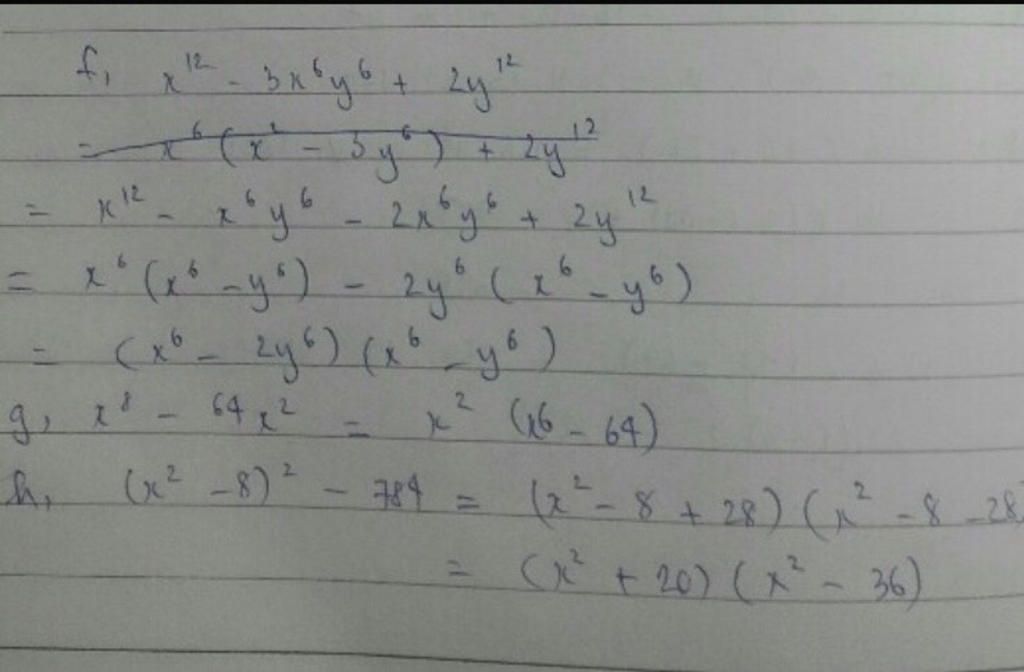 f, x¹² - 3x⁶y⁶ + 2y¹²
= x⁶ (x² - 3y⁶) + 2y¹²
= x¹² - x⁶y⁶ - 2x⁶y⁶ + 2y¹²
= x⁶ (x⁶ - y⁶) - 2y⁶ (x⁶ - y⁶)
= (x⁶ - 2y⁶) (x⁶ - y⁶)
g, x⁸ - 64x² = x² (x6 - 64)
h, (x² - 8)² - 784 = (x² - 8 + 28) (x² - 8 - 28)
= (x² + 20) (x² - 36)